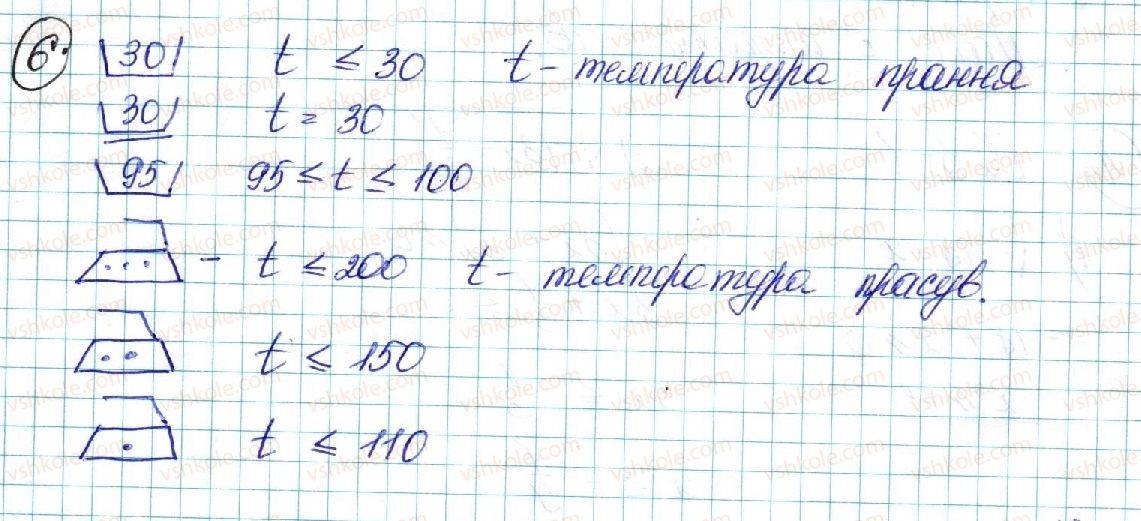 6. 30 t ≤ 30 t - температура прання
30 t = 30
95 95 ≤ t ≤ 100
- t ≤ 200 t - температура прасув.
t ≤ 150
t ≤ 110
vshkole.com